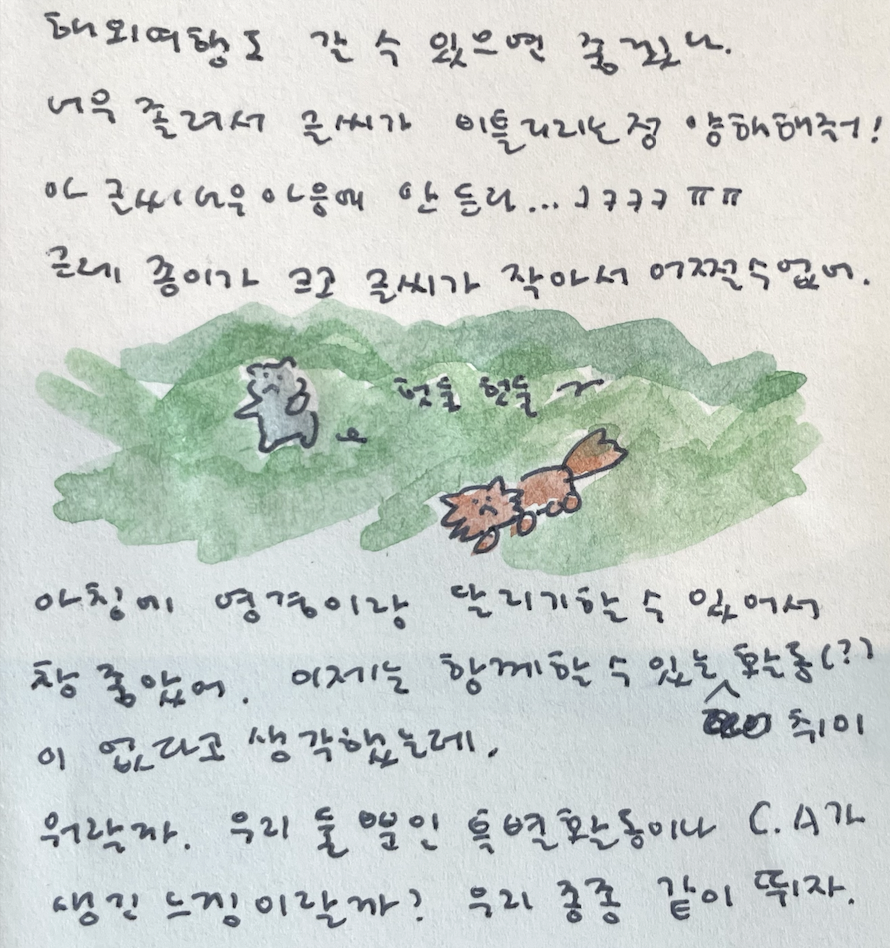 해외여행도 갈 수 있으면 좋겠다.
너무 졸려서 글씨가 비틀거리는 점 양해해줘!
아 글씨 너무 마음에 안 들어... ㅋㅋㅋ ㅠㅠ
근데 종이가 크고 글씨가 작아서 어쩔수없어.
헛둘 헛둘 ~
아침에 영경이랑 달리기할 수 있어서
참 좋았어. 이제는 함께할 수 있는 활동(?)
취미
이 없다고 생각했는데,
뭐랄까. 우리 둘 뿐인 특별활동이나 C.A가
생긴 느낌이랄까? 우리 종종 같이 뛰자.